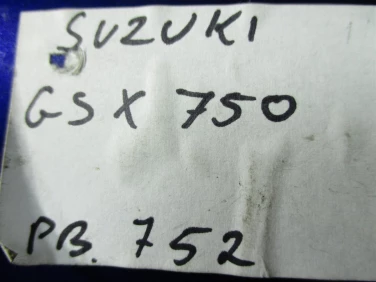 SUZUKI
GSX 750
PB. 752